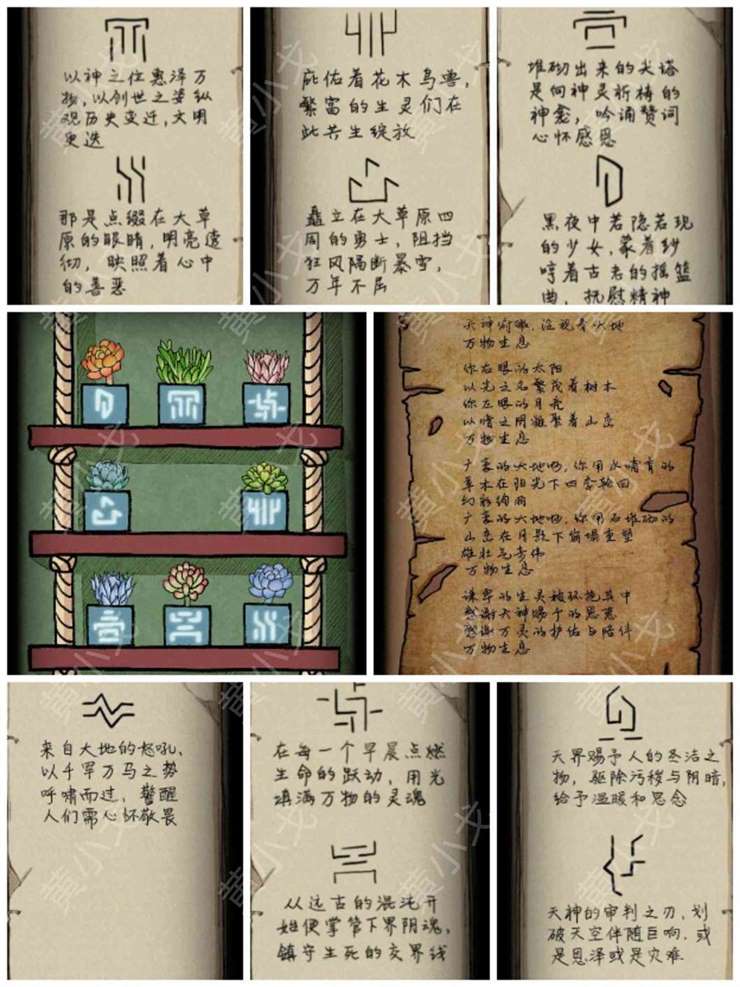 以神之位惠泽万
物，以创世之姿纵
观历史变迁，文明
更迭
那是点缀在大草
原的眼睛，明亮透
彻，映照着心中
的善恶
庇佑着花木鸟兽，
繁富的生灵们在
此共生绽放
矗立在大草原四
周的勇士，阻挡
狂风隔断暴雪，
万年不屈
堆砌出来的尖塔
是向神灵祈祷的
神龛，吟诵赞词
心怀感恩
黑夜中若隐若现
的少女，蒙着纱
哼着古老的摇篮
曲，抚慰精神
天神俯瞰，注视着大地
万物生息
你右眼的太阳
以光之名繁茂着树木
你左眼的月亮
以暗之阴凝聚着山峦
万物生息
广袤的大地呦，你用水哺育的
草木在阳光下四季轮回
幻彩绚丽
广袤的大地呦，你用石堆砌的
山峦在月影下崩塌重塑
雄壮巍伟
万物生息
谦卑的生灵被环抱其中
感谢天神赐予的恩惠
感谢万灵的护佑与陪伴
万物生息
来自大地的怒吼、
以千军万马之势
呼啸而过，警醒
人们需心怀敬畏
在每一个早晨点燃
生命的跃动，用光
填满万物的灵魂
从远古的混沌开
始便掌管下界阴魂，
镇守生死的交界线
天界赐予人的圣洁之
物，驱除污秽与阴暗，
给予温暖和思念
天神的审判之刃，划
破天空伴随巨响，或
是恩泽或是灾难
黄小戈